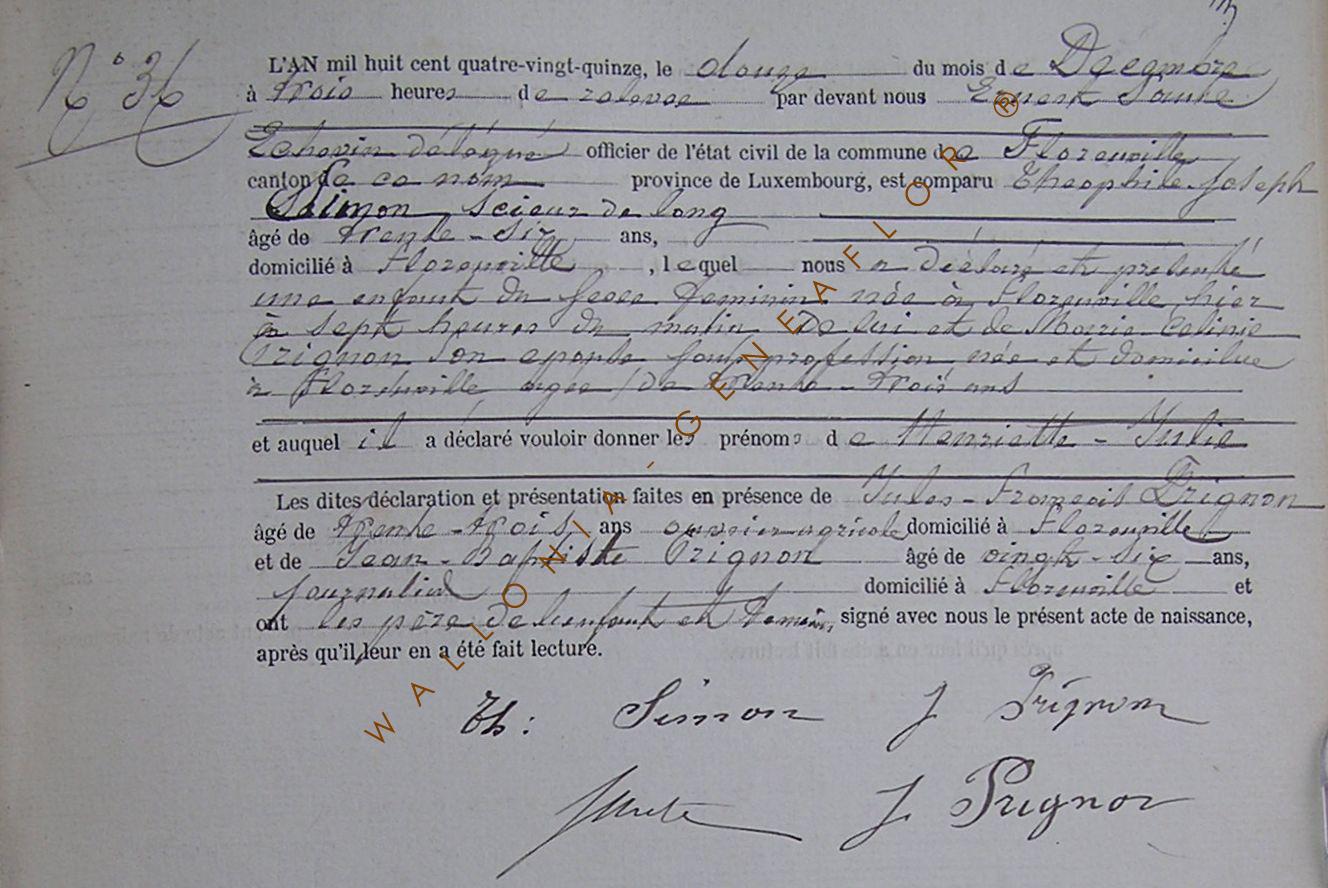 N° 36
L'AN mil huit cent quatre-vingt-quinze, le douze du mois de Décembre
à trois heures de relevée par devant nous Ernest
Echevin délégué officier de l'état civil de la commune de Florenville
canton de ce nom province de Luxembourg, est comparu Théophile Joseph
Simon, scieur de long
âgé de trente-six ans,
domicilié à Florenville, lequel nous a déclaré et présenté
une enfant du sexe féminin née à Florenville, hier
à sept heures du matin de lui et de Marie
Prignon son épouse sans profession née et domiciliée
à Florenville agée de trente-trois ans
et auquel il a déclaré vouloir donner les prénoms de Henriette-Julie
Les dites déclaration et présentation faites en présence de Jules-François Prignon
âgé de trente-trois ans ouvrier agricole domicilié à Florenville
et de Jean-Baptiste Prignon âgé de vingt-six ans,
journalier domicilié à Florenville et
ont les père de l'enfant et témoins, signé avec nous le présent acte de naissance,
après qu'il leur en a été fait lecture.
Th: Simon J Prignon
J Prignon
WALLONIA-GENEAFLOR ®